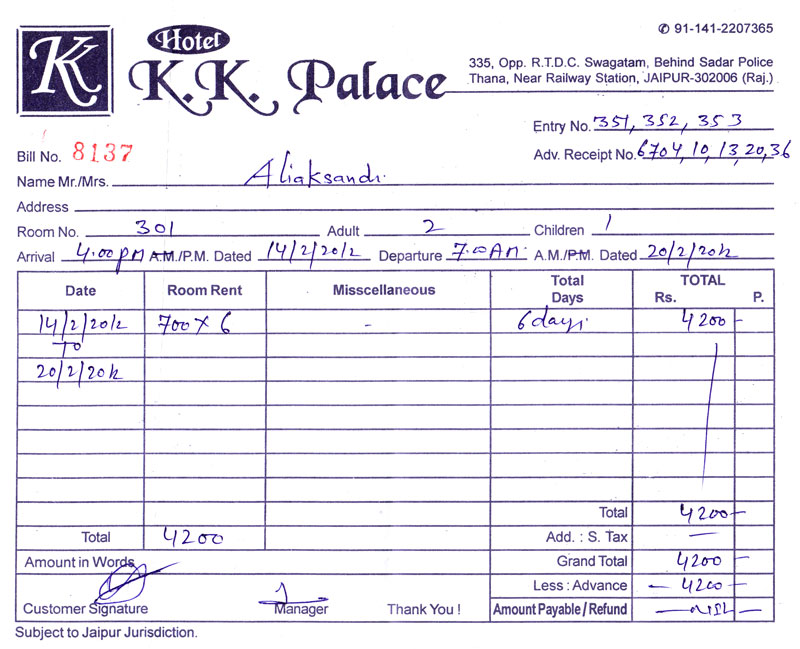 ✆ 91-141-2207365
K
Hotel
K.K. Palace
335, Opp. R.T.D.C. Swagatam, Behind Sadar Police
Thana, Near Railway Station, JAIPUR-302006 (Raj.)
Entry No. 351, 352, 353
Bill No. 8137
Adv. Receipt No. 6704, 10, 13, 20, 36
Name Mr./Mrs. Aliaksandr
Address
Room No. 301 Adult 2 Children 1
Arrival 4:00 PM A.M./P.M. Dated 14/2/2012 Departure 7:00 AM. A.M./P.M. Dated 20/2/2012
Date Room Rent Misscellaneous Total Days TOTAL Rs. P.
14/2/2012 700 x 6 - 6 days. 4200 -
To
20/2/2012
Total 4200 -
Total 4200 Add. : S. Tax —
Amount in Words Grand Total 4200 -
Less : Advance - 4200 -
Customer Signature Manager Thank You ! Amount Payable / Refund - Nil -
Subject to Jaipur Jurisdiction.